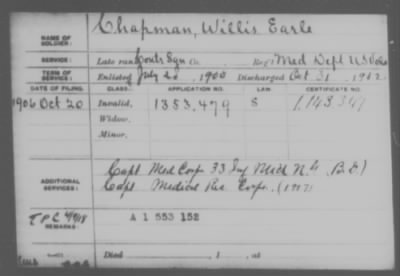 NAME OF SOLDIER: Chapman, Willis Earle
SERVICE: Late rank Contr Sgn Co. Reg't Med Dept U.S. Vols
TERM OF SERVICE: Enlisted July 20, 1900 Discharged Oct 31, 1902
DATE OF FILING. CLASS. APPLICATION NO. LAW CERTIFICATE NO.
1906 Oct 20 Invalid, 1353,479 S 1,143,347
Widow,
Minor,
ADDITIONAL SERVICES: Capt Med Corp 33 Inf Mich N.G.
Capt Medical Res. Corps. (1917)
REMARKS: A 1 553 152
Died , 1 , at